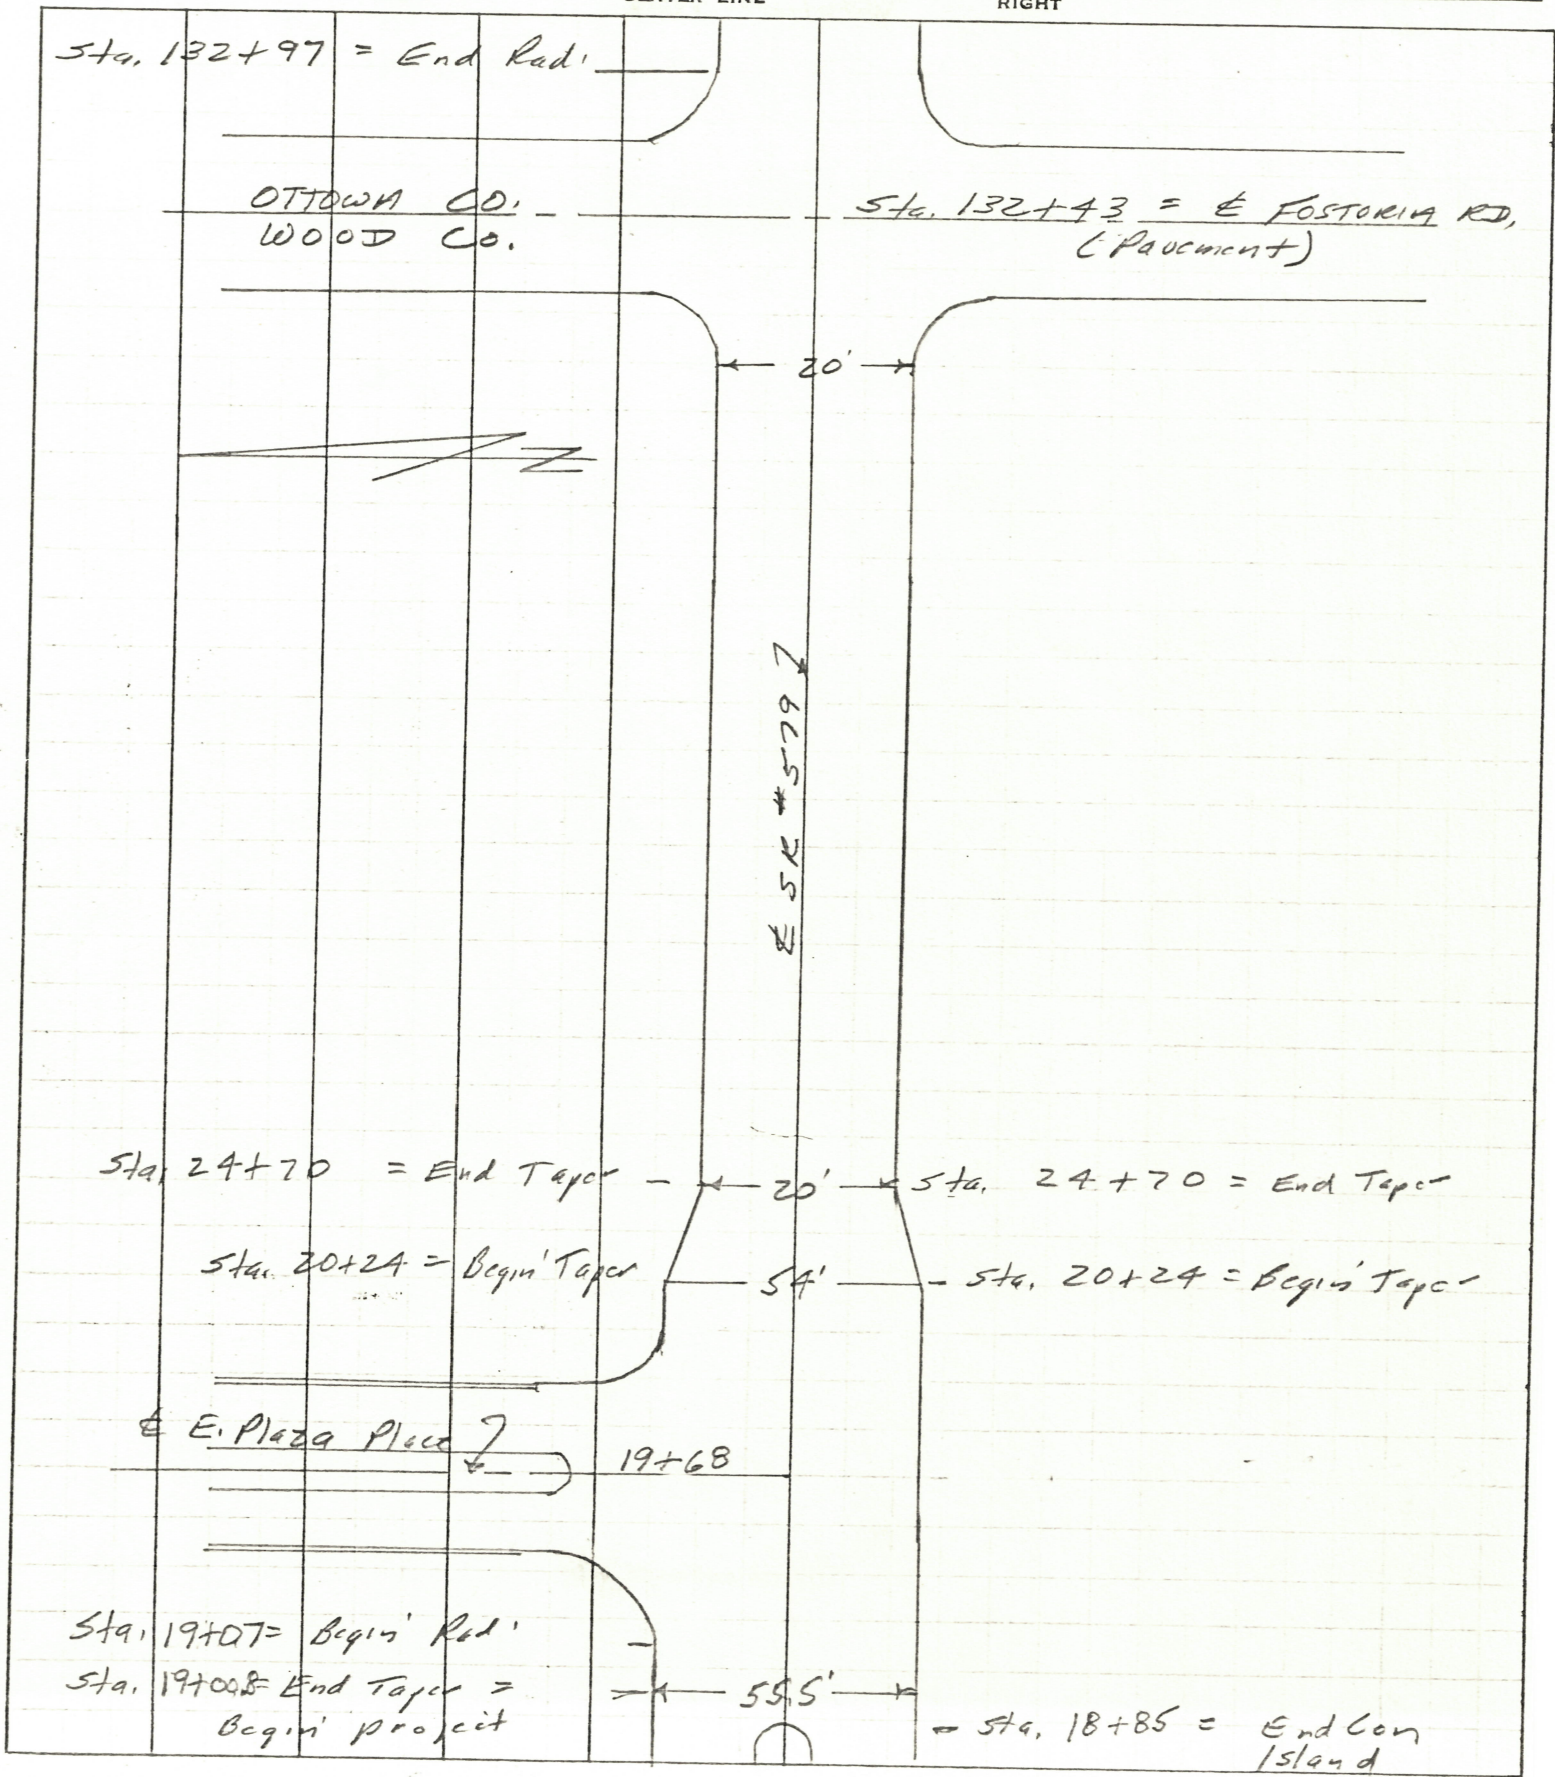 CENTER LINE
RIGHT
Sta. 132+97 = End Rad.
OTTOWA CO.
WOOD CO.
Sta. 132+43 = ℄ FOSTORIA RD,
(Pavement)
20'
N
℄ SR #579
Sta. 24+70 = End Taper
20'
Sta. 24+70 = End Taper
Sta. 20+24 = Begin Taper
54'
Sta. 20+24 = Begin Taper
℄ E. Plaza Place
19+68
Sta. 19+07= Begin Rad.
Sta. 19+00.8= End Taper =
Begin project
55.5'
Sta. 18+85 = End Con
Island